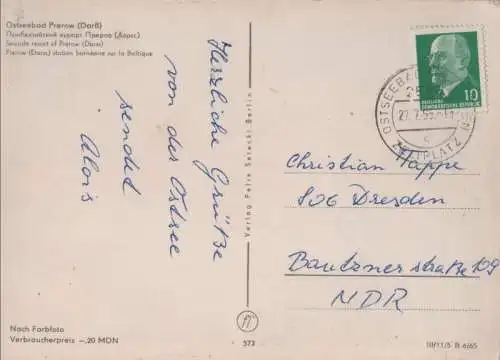 Ostseebad Prerow (Darß)
Прибалтийский курорт Преров (Дарос)
Seaside resort of Prerow (Darss)
Prerow (Darss) station balnéaire sur la Baltique
Herzliche Grüße
von der Ostsee
sendet
Alois
Verlag Felix Setecki Berlin
OSTSEEBAD
ZELTPLATZ
10
DEUTSCHE
DEMOKRATISCHE REPUBLIK
Christian Happe
806 Dresden
Bautzner straße 109
NDR
Nach Farbfoto
Verbraucherpreis –,20 MDN
573
III/11/5 B 6/65